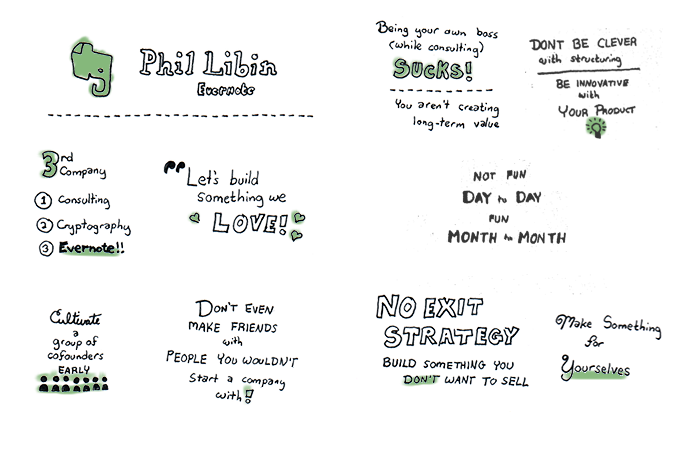 Phil Libin
Evernote
3rd
Company
1 Consulting
2 Cryptography
3 Evernote!!
"Let's build
something we
LOVE!
Cultivate
a
group of
cofounders
EARLY
DON'T EVEN
MAKE FRIENDS
with
PEOPLE YOU WOULDN'T
Start a company
with!
Being your own boss
(while consulting)
SUCKS!
You aren't creating
long-term value
DONT BE CLEVER
with structuring
BE INNOVATIVE
with
YOUR PRODUCT
NOT FUN
DAY to DAY
FUN
MONTH to MONTH
NO EXIT
STRATEGY
BUILD SOMETHING YOU
DON'T WANT TO SELL
Make Something
for
Yourselves